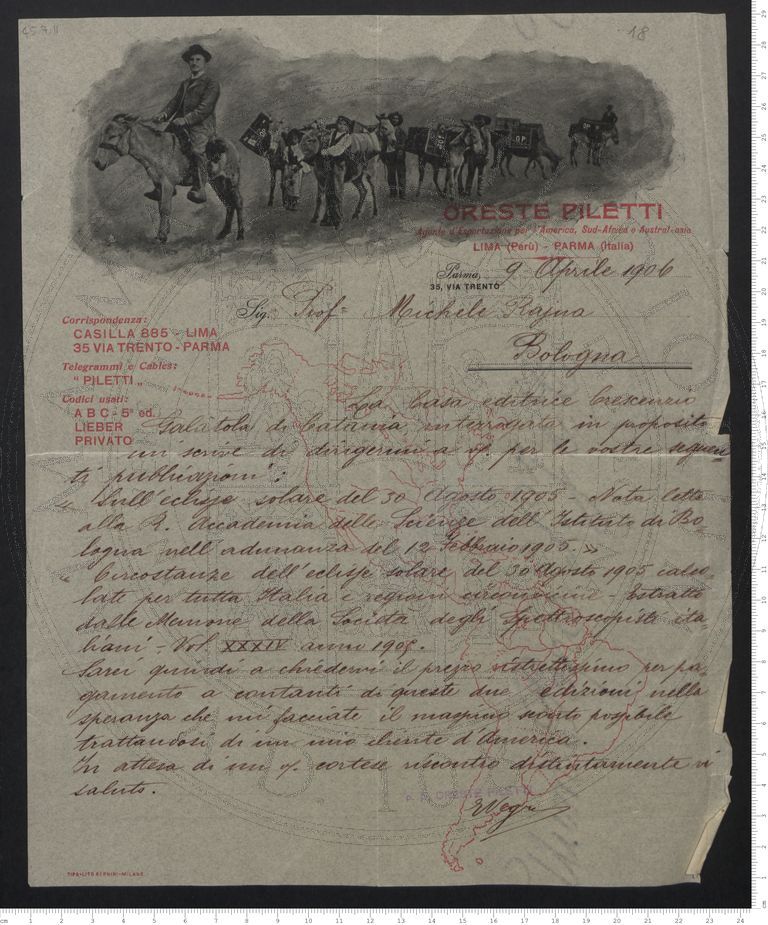 18
OP
ORESTE PILETTI
Agente d'Esportazione per l'America, Sud-Africa e Austral-asia
LIMA (Perù) - PARMA (Italia)
Parma, 9 Aprile 1906
35, VIA TRENTO
Sig. Prof. Michele Rajna
Bologna
Corrispondenza:
CASILLA 885 - LIMA
35 VIA TRENTO - PARMA
Telegrammi e Cables:
"PILETTI„
Codici usati:
A B C - 5ª ed.
LIEBER
PRIVATO
La Casa editrice Crescenzio
Galàtola di Catania interrogata in proposito
mi scrive di dirigermi a v/. per le vostre seguen
ti pubblicazioni:
"Sull'eclisse solare del 30 Agosto 1905 - Nota letta
alla R. Accademia delle Scienze dell'Istituto di Bo-
logna nell'adunanza del 12 Febbraio 1905. »
" Circostanze dell'eclisse solare del 30 Agosto 1905 calco-
late per tutta Italia e regioni circonvicine - Estratto
dalle Memorie della Società degli Spettroscopisti ita-
liani - Vol. XXXIV anno 1905.
Sarei quindi a chiedervi il prezzo ristrettissimo per pa-
gamento a contanti di queste due edizioni nella
speranza che mi facciate il massimo sconto possibile
trattandosi di un mio cliente d'America.
In attesa di un v/. cortese riscontro distintamente vi
saluto.
P. P. ORESTE PILETTI
TIPO-LITO BERNINI-MILANO